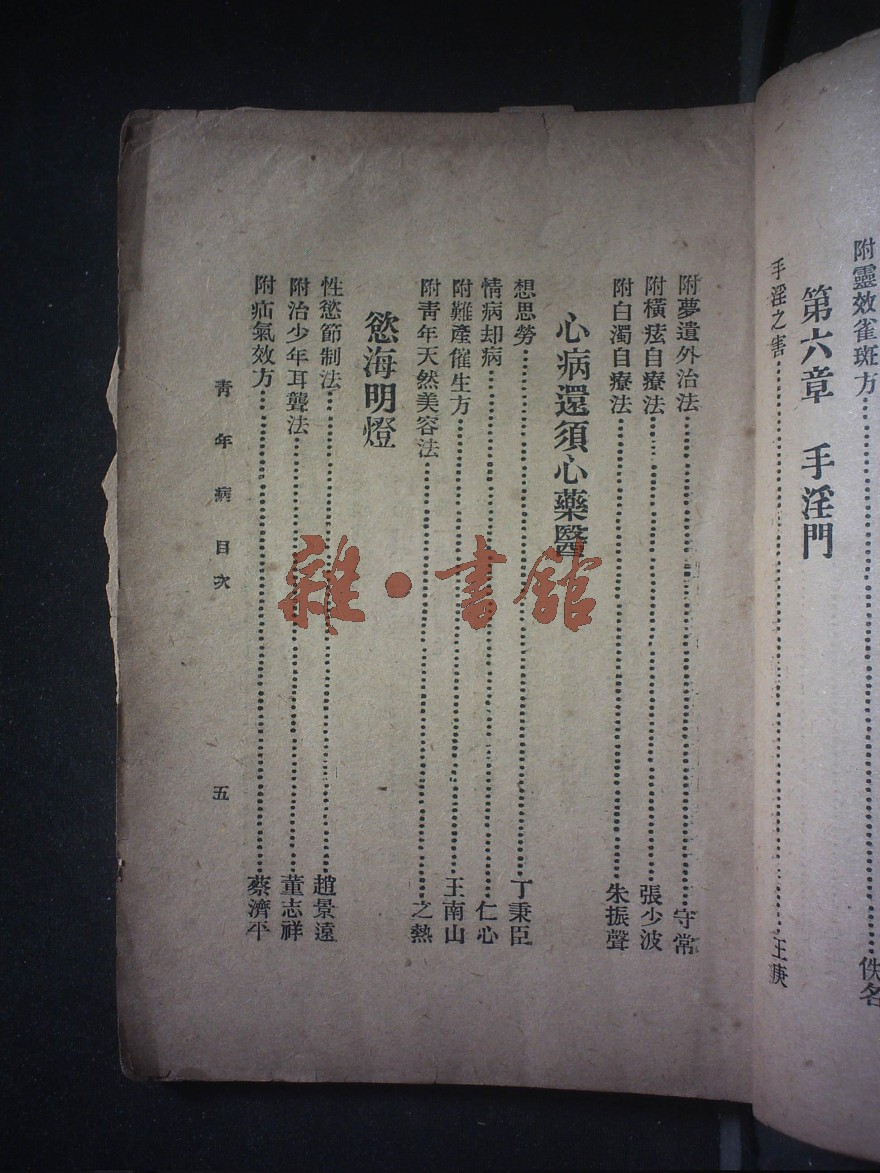 附靈效雀斑方……佚名
第六章　手淫門
手淫之害……王庚
附夢遺外治法……守常
附橫痃自療法……張少波
附白濁自療法……朱振聲
心病還須心藥醫
想思勞……丁秉臣
情病却病……仁心
附難產催生方……王南山
附靑年天然美容法……之熱
慾海明燈
性慾節制法……趙景遠
附治少年耳聾法……董志祥
附疝氣效方……蔡濟平
靑年病目次
五
雜·書館